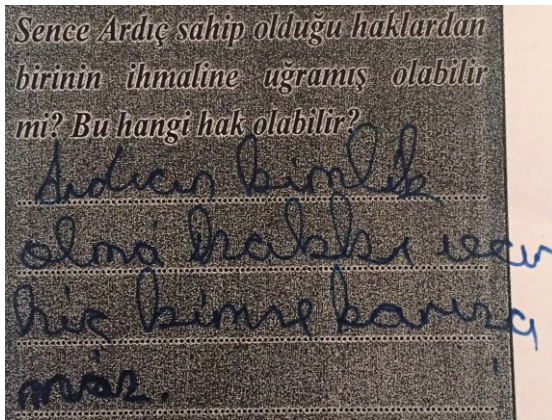 Sence Ardıç sahip olduğu haklardan
birinin ihmaline uğramış olabilir
mi? Bu hangi hak olabilir?
Ardıcın kimlik
olma hakkı var
hiç kimse karışa
maz.